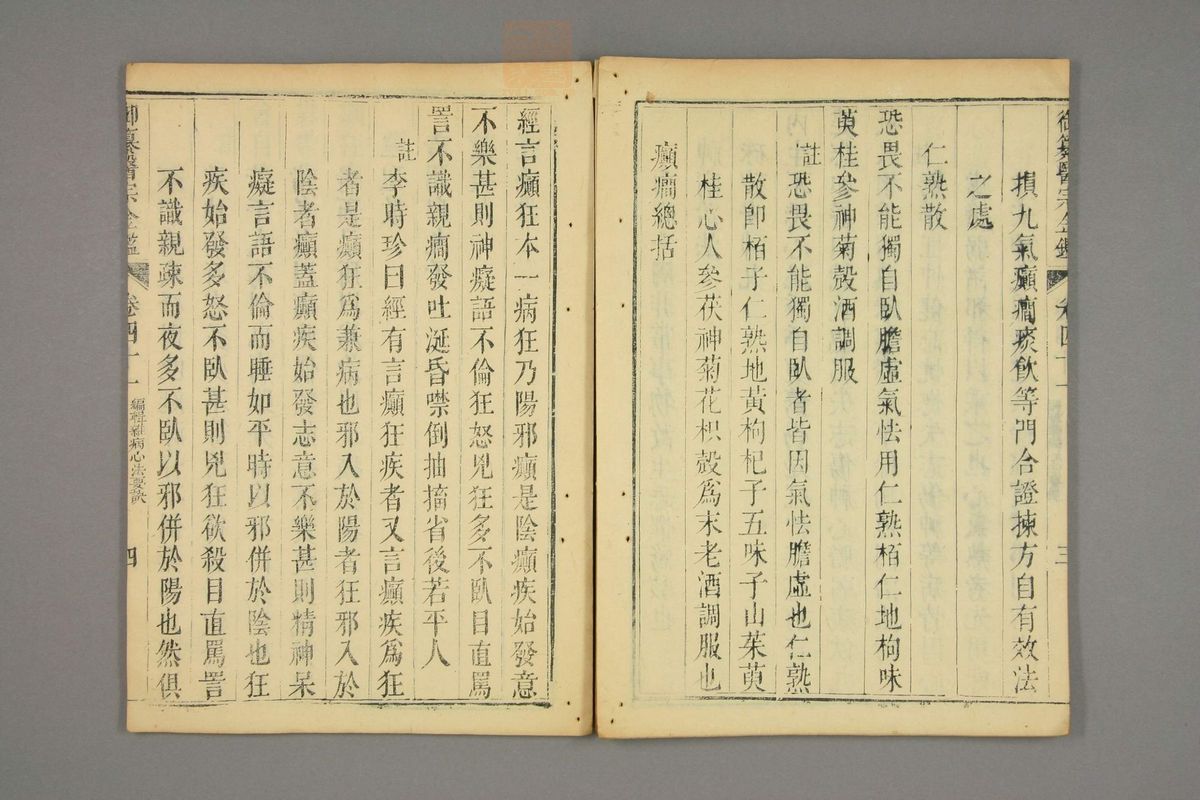 御纂醫宗金鑑 卷四十一 三
損九氣癲癎痰飮等門合證揀方自有效法
之處
仁熟散
恐畏不能獨自臥膽虛氣怯用仁熟栢仁地枸味
萸桂參神菊殼酒調服
註恐畏不能獨自臥者皆因氣怯膽虛也仁熟
散卽栢子仁熟地黃枸杞子五味子山茱萸
桂心人參茯神菊花枳殼爲末老酒調服也
癲癎總括
經言癲狂本一病狂乃陽邪癲是陰癲疾始發意
不樂甚則神癡語不倫狂怒兇狂多不臥目直罵
詈不識親癎發吐涎昏噤倒抽搐省後若平人
註李時珍曰經有言癲狂疾者又言癲疾爲狂
者是癲狂爲兼病也邪入於陽者狂邪入於
陰者癲蓋癲疾始發志意不樂甚則精神呆
癡言語不倫而睡如平時以邪併於陰也狂
疾始發多怒不臥甚則兇狂欲殺目直罵詈
不識親疎而夜多不臥以邪併於陽也然俱
御纂醫宗金鑑 卷四十一 編輯雜病心法要訣 四